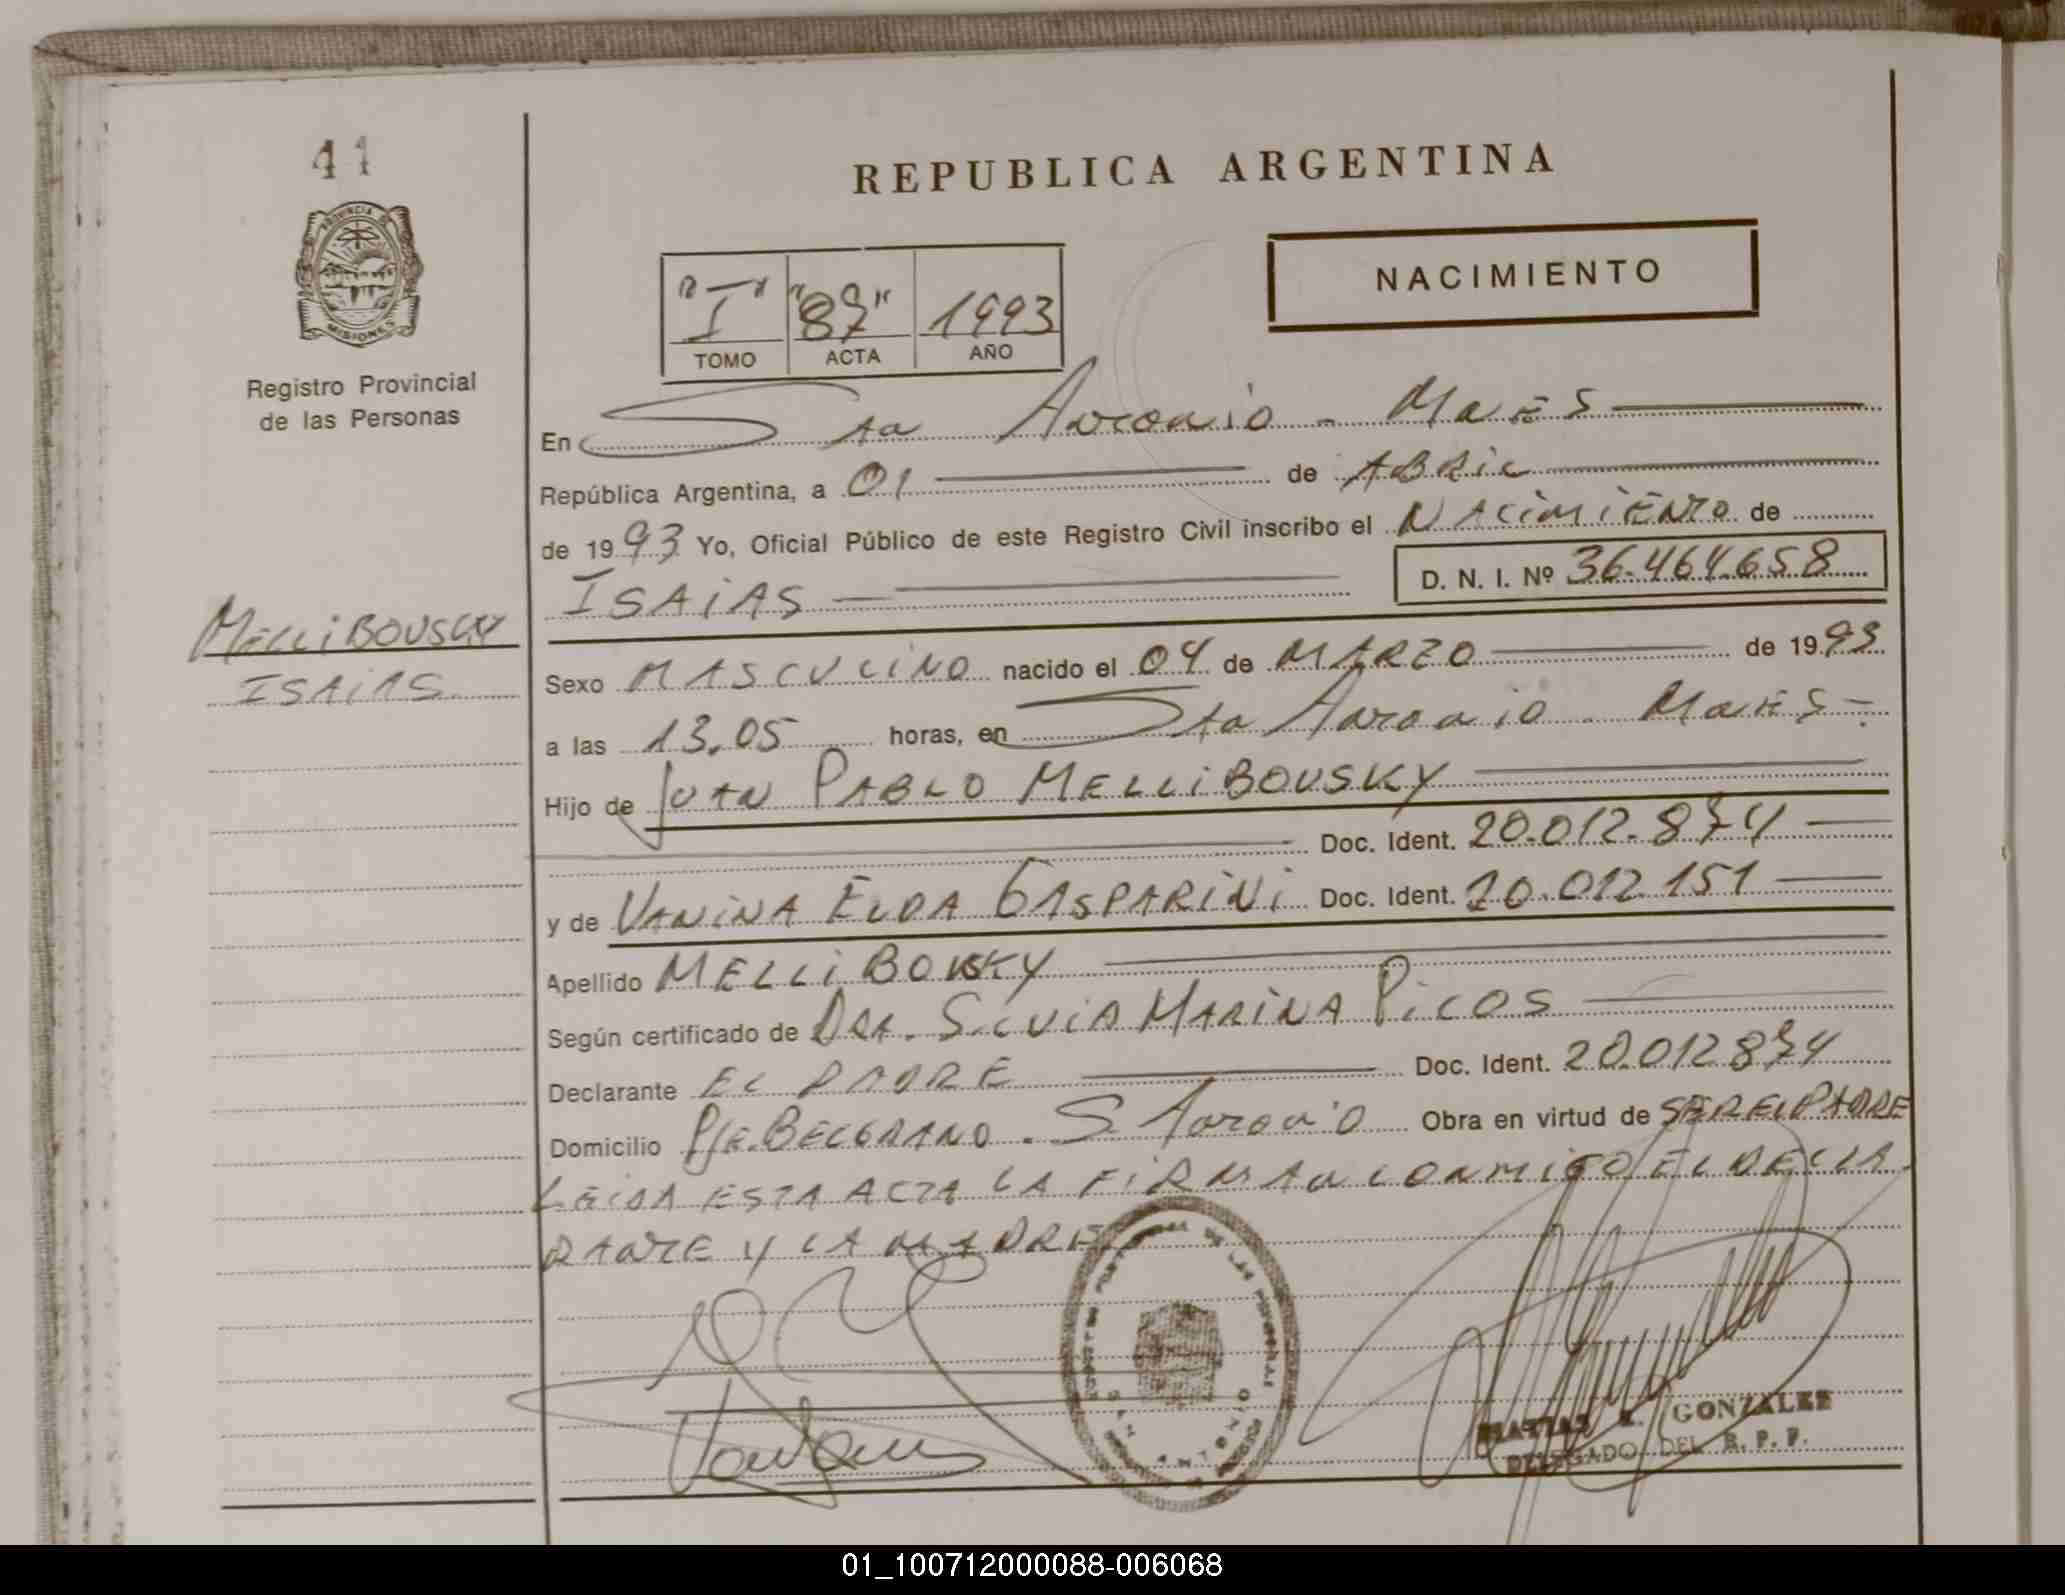 41
REPUBLICA ARGENTINA
PROVINCIA DE
MISIONES
Registro Provincial
de las Personas
NACIMIENTO
"I" "87" 1993
TOMO ACTA AÑO
En Sta Antonio - Mnes
República Argentina, a 01 de ABRIL
de 1993 Yo, Oficial Público de este Registro Civil inscribo el NACIMIENTO de
ISAIAS D. N. I. Nº 36.464.658
MELLIBOVSKY
ISAIAS
Sexo MASCULINO nacido el 04 de MARZO de 1993
a las 13.05 horas, en Sta Antonio Mnes -
Hijo de JUAN PABLO MELLIBOVSKY
Doc. Ident. 20.012.874
y de VANINA ELDA GASPARINI Doc. Ident. 20.012.151
Apellido MELLIBOVSKY
Según certificado de DRA. SILVIA MARINA PICOS
Declarante EL PADRE Doc. Ident. 20.012874
Domicilio PJE. BELGRANO. S. Antonio Obra en virtud de SER EL PADRE
LEIDA ESTA ACTA LA FIRMAN CONMIGO EL DECLA
RANTE Y LA MADRE
MATIAS GONZALEZ
DELEGADO DEL R. P. P.
01_100712000088-006068